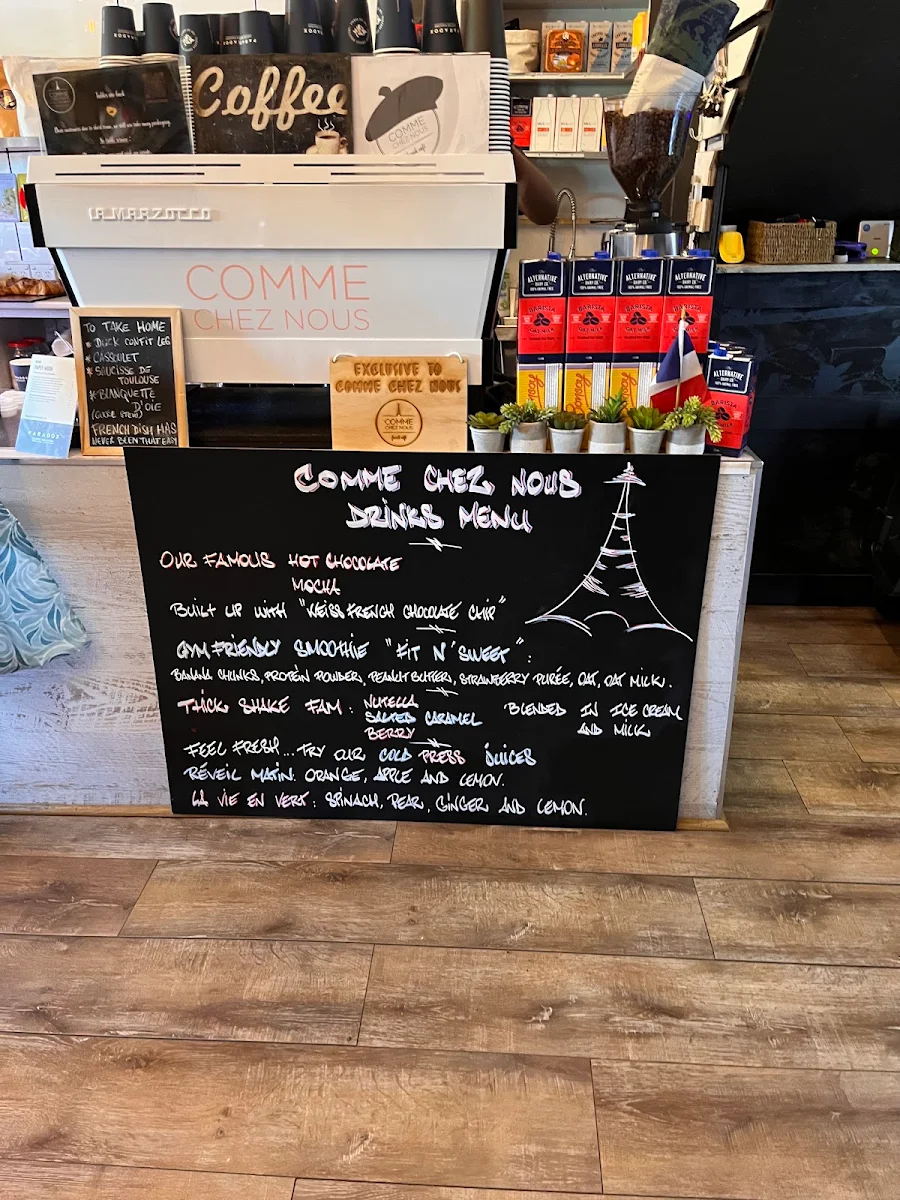 Coffee
COMME
CHEZ NOUS
LA MARZOCCO
COMME
CHEZ NOUS
TO TAKE HOME
* DUCK CONFIT LEG
* CASSOULET
* SAUCISSE DE
TOULOUSE
* BLANQUETTE
D'OIE
FRENCH DISH HAS
NEVER BEEN THAT EASY
EXCLUSIVE TO
COMME CHEZ NOUS
COMME
CHEZ NOUS
ALTERNATIVE
DAIRY CO.
BARISTA
OAT MILK
ALTERNATIVE
DAIRY CO.
BARISTA
OAT MILK
ALTERNATIVE
DAIRY CO.
BARISTA
OAT MILK
ALTERNATIVE
DAIRY CO.
BARISTA
ALTERNATIVE
BARISTA
PARADOX
COMME CHEZ NOUS
DRINKS MENU
OUR FAMOUS HOT CHOCOLATE
MOCHA
BUILT UP WITH "WEISS FRENCH CHOCOLATE CHIP"
GYM FRIENDLY SMOOTHIE "FIT N' SWEET":
BANANA CHUNKS, PROTEIN POWDER, PEANUT BUTTER, STRAWBERRY PURÉE, OAT, OAT MILK.
THICK SHAKE FAM: NUTELLA
SALTED CARAMEL
BERRY
BLENDED IN ICE CREAM
AND MILK
FEEL FRESH... TRY OUR COLD PRESS JUICES
RÉVEIL MATIN: ORANGE, APPLE AND LEMON.
LA VIE EN VERT: SPINACH, PEAR, GINGER AND LEMON.